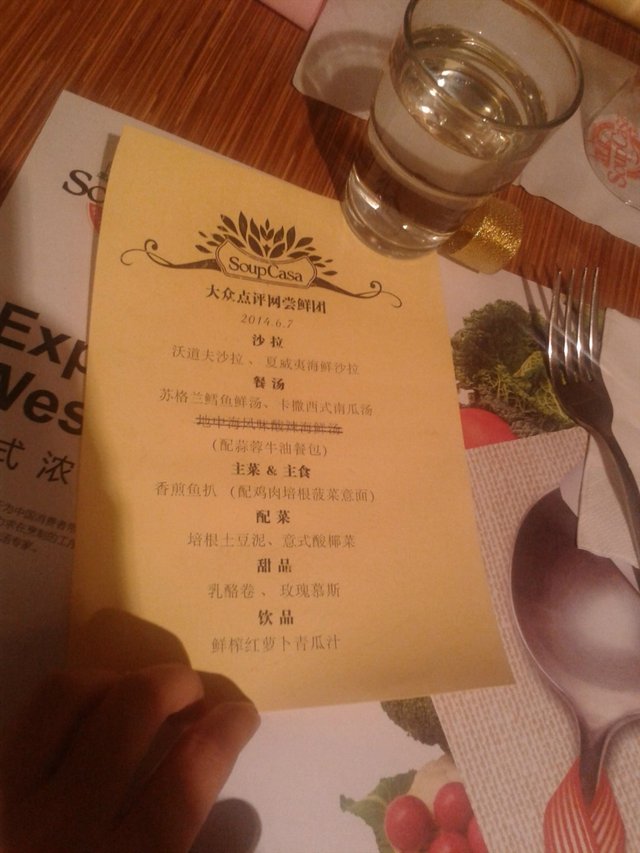 SoupCasa
大众点评网尝鲜团
2014.6.7
沙拉
沃道夫沙拉、夏威夷海鲜沙拉
餐汤
苏格兰鳕鱼鲜汤、卡撒西式南瓜汤
地中海风味酸辣海鲜汤
(配蒜蓉牛油餐包)
主菜 & 主食
香煎鱼扒 (配鸡肉培根菠菜意面)
配菜
培根土豆泥、意式酸椰菜
甜品
乳酪卷、玫瑰慕斯
饮品
鲜榨红萝卜青瓜汁
Exp
Wes
式 浓